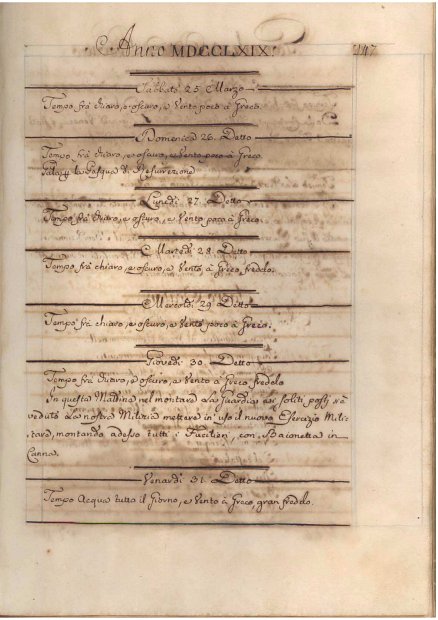 Anno MDCCLXIX.
247
Sabbato 25. Marzo
Tempo frà chiaro, e oscuro, e Vento poco à Greco.
Domenica 26. Detto
Tempo frà chiaro, e oscuro, e Vento poco à Greco
Gala la Pasqua di Resurrezione
Lunedi 27. Detto
Tempo frà chiaro, e oscuro, e Vento poco à Greco
Martedi 28. Detto
Tempo frà chiaro, e oscuro, e Vento à Greco freddo.
Mercoldi 29. Detto
Tempo frà chiaro, e oscuro, e Vento poco à Greco.
Giovedi 30. Detto
Tempo frà chiaro, e oscuro, e Vento à Greco freddo
In questa Mattina nel montare la Guardia soliti posti s'è
veduto la nostra Milizia mettere in uso il nuovo Esercizio Mili-
tare, montando adesso tutti i Fucilieri, con Baionetta in
Canna.
Venardi 31. Detto
Tempo Acqua tutto il Giorno, e Vento à Greco, gran freddo.